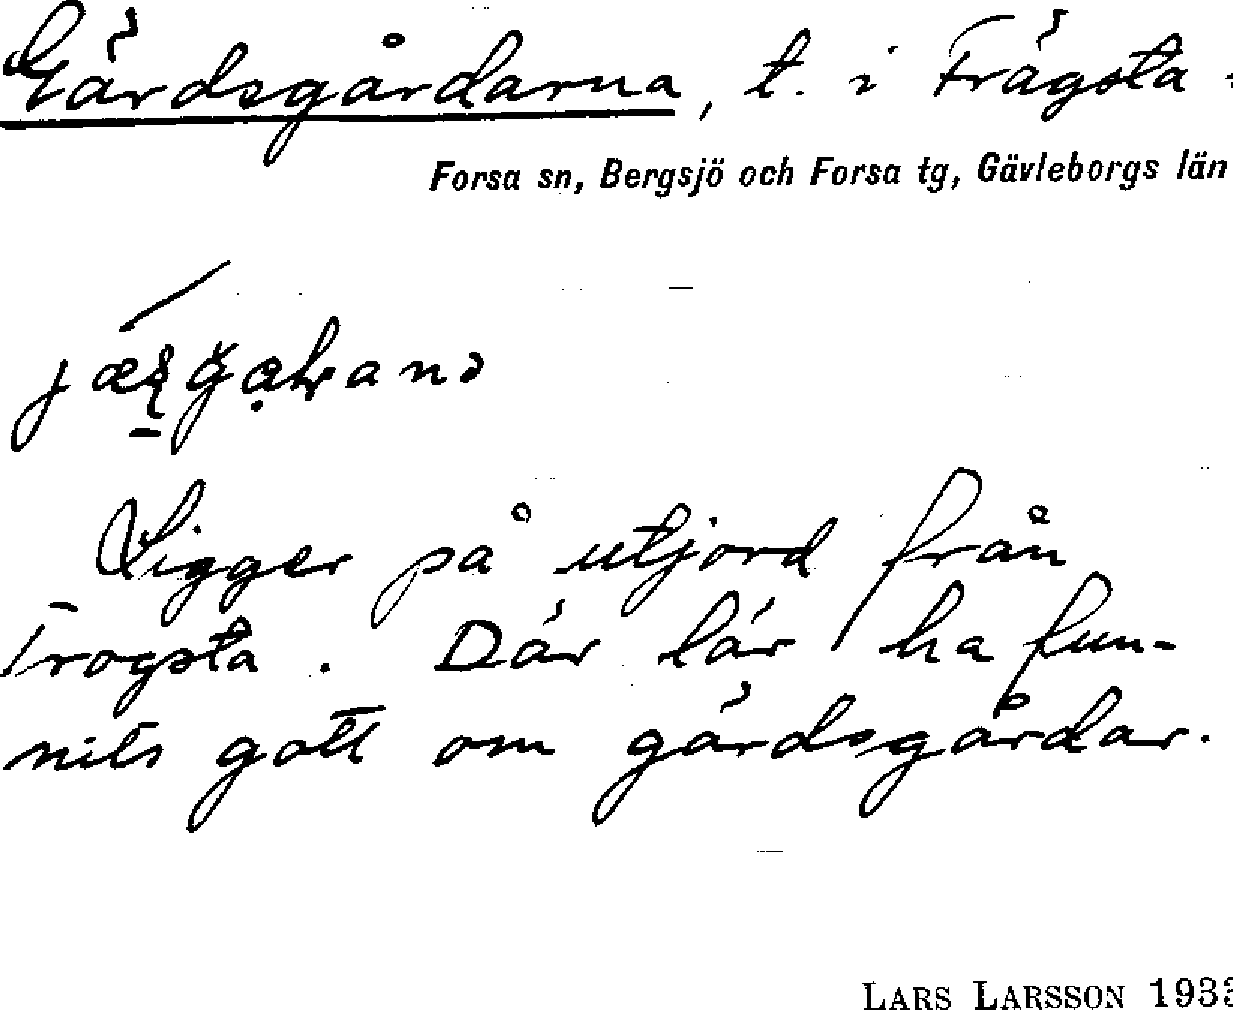 Gärdsgårdarna, t. i Frägsta
Forsa sn, Bergsjö och Forsa tg, Gävleborgs län
Ligger på utjord från
Trogsta. Där lär ha fun-
nits gott om gärdsgårdar.
LARS LARSSON 1933